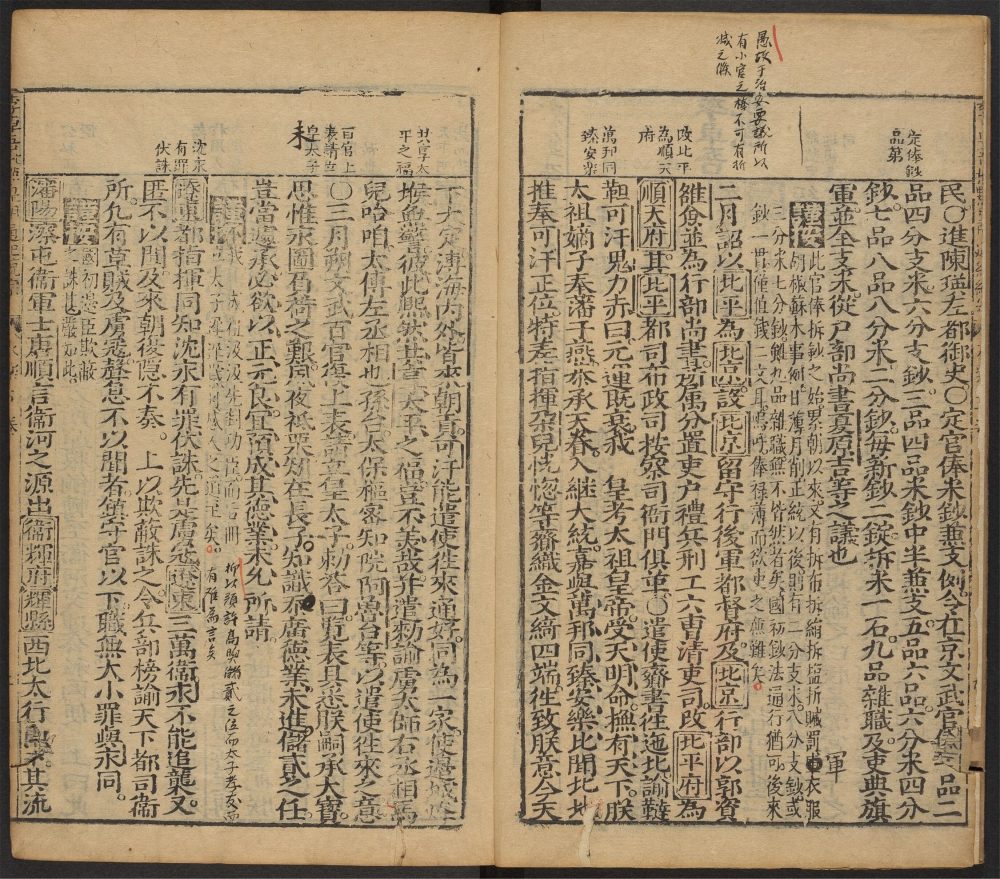 愚攷于治安要議所以
有小官之俸不可有折
減之條
定俸鈔
品第
民〇進陳瑛左都御史〇定官俸米鈔兼支例令在京文武官俸一品二
品四分支米六分支鈔三品四品米鈔中半兼支五品六品六分米四分
鈔七品八品八分米二分鈔每新鈔二錠折米一石九品雜職及吏典旗
軍並全支米從戶部尚書夏原吉等之議也
軍
謹按此官俸折鈔之始累朝以來又有折布折絹折鹽折贓罰衣服
胡椒蘇木事例日薄月削正統以後則有二分支米八分支鈔或
三分米七分鈔雖九品雜職無不皆然者矣國初鈔法通行猶可後來
鈔一貫僅值錢二文耳嗚呼俸祿薄而欲吏之廉難矣
二月詔以北平為北京設北京留守行後軍都督府及北京行部以郭資
雒僉並為行部尚書所屬分置吏戶禮兵刑工六曹清吏司改北平府為
順天府其北平都司布政司按察司衙門俱革〇遣使齎書往迤北諭韃
靼可汗鬼力赤曰元運既衰我 皇考太祖皇帝受天明命撫有天下朕
太祖嫡子奉藩于燕恭承天眷入繼大統嘉與萬邦同臻安樂比聞北地
推奉可汗正位特差指揮朶兒只恍惚等齎織金文綺四端往致朕意今天
改北平
為順天
府
萬邦同
臻安樂
下大定薄海內外皆來朝貢可汗能遣使往來通好同為一家使邊城烽
堠無警彼此熙然共享太平之福豈不美哉并遣勅諭虜太師右丞相馬
兒哈咱太傅左丞相也孫台太保樞密知院阿魯台等以遣使往來之意
〇三月朔文武百官復上表請立皇太子勅答曰覽表具悉朕嗣承大寶
思惟永圖負荷之艱夙夜祗栗知在長子知識未廣德業未進儲貳之任
豈當遽承必欲以正元良宜預成其德業未允所請
共享太
平之福
百官上
表請立
皇太子
未
所以頭許高煦瀕貳之位而太子孝友而
有難為言矣
遼東都指揮同知沈永有罪伏誅先是虜寇遼東三萬衛永不能追襲又
匿不以聞及來朝復隱不奏 上以欺蔽誅之令兵部榜諭天下都司衛
所凡有草賊及虜寇聲息不以聞者鎮守官以下職無大小罪與永同
沈永
有罪
伏誅
謹按國初惡臣欺蔽
之誅甚嚴如此
瀋陽深屯衛軍士唐順言衛河之源出衛輝府輝縣西北太行其流